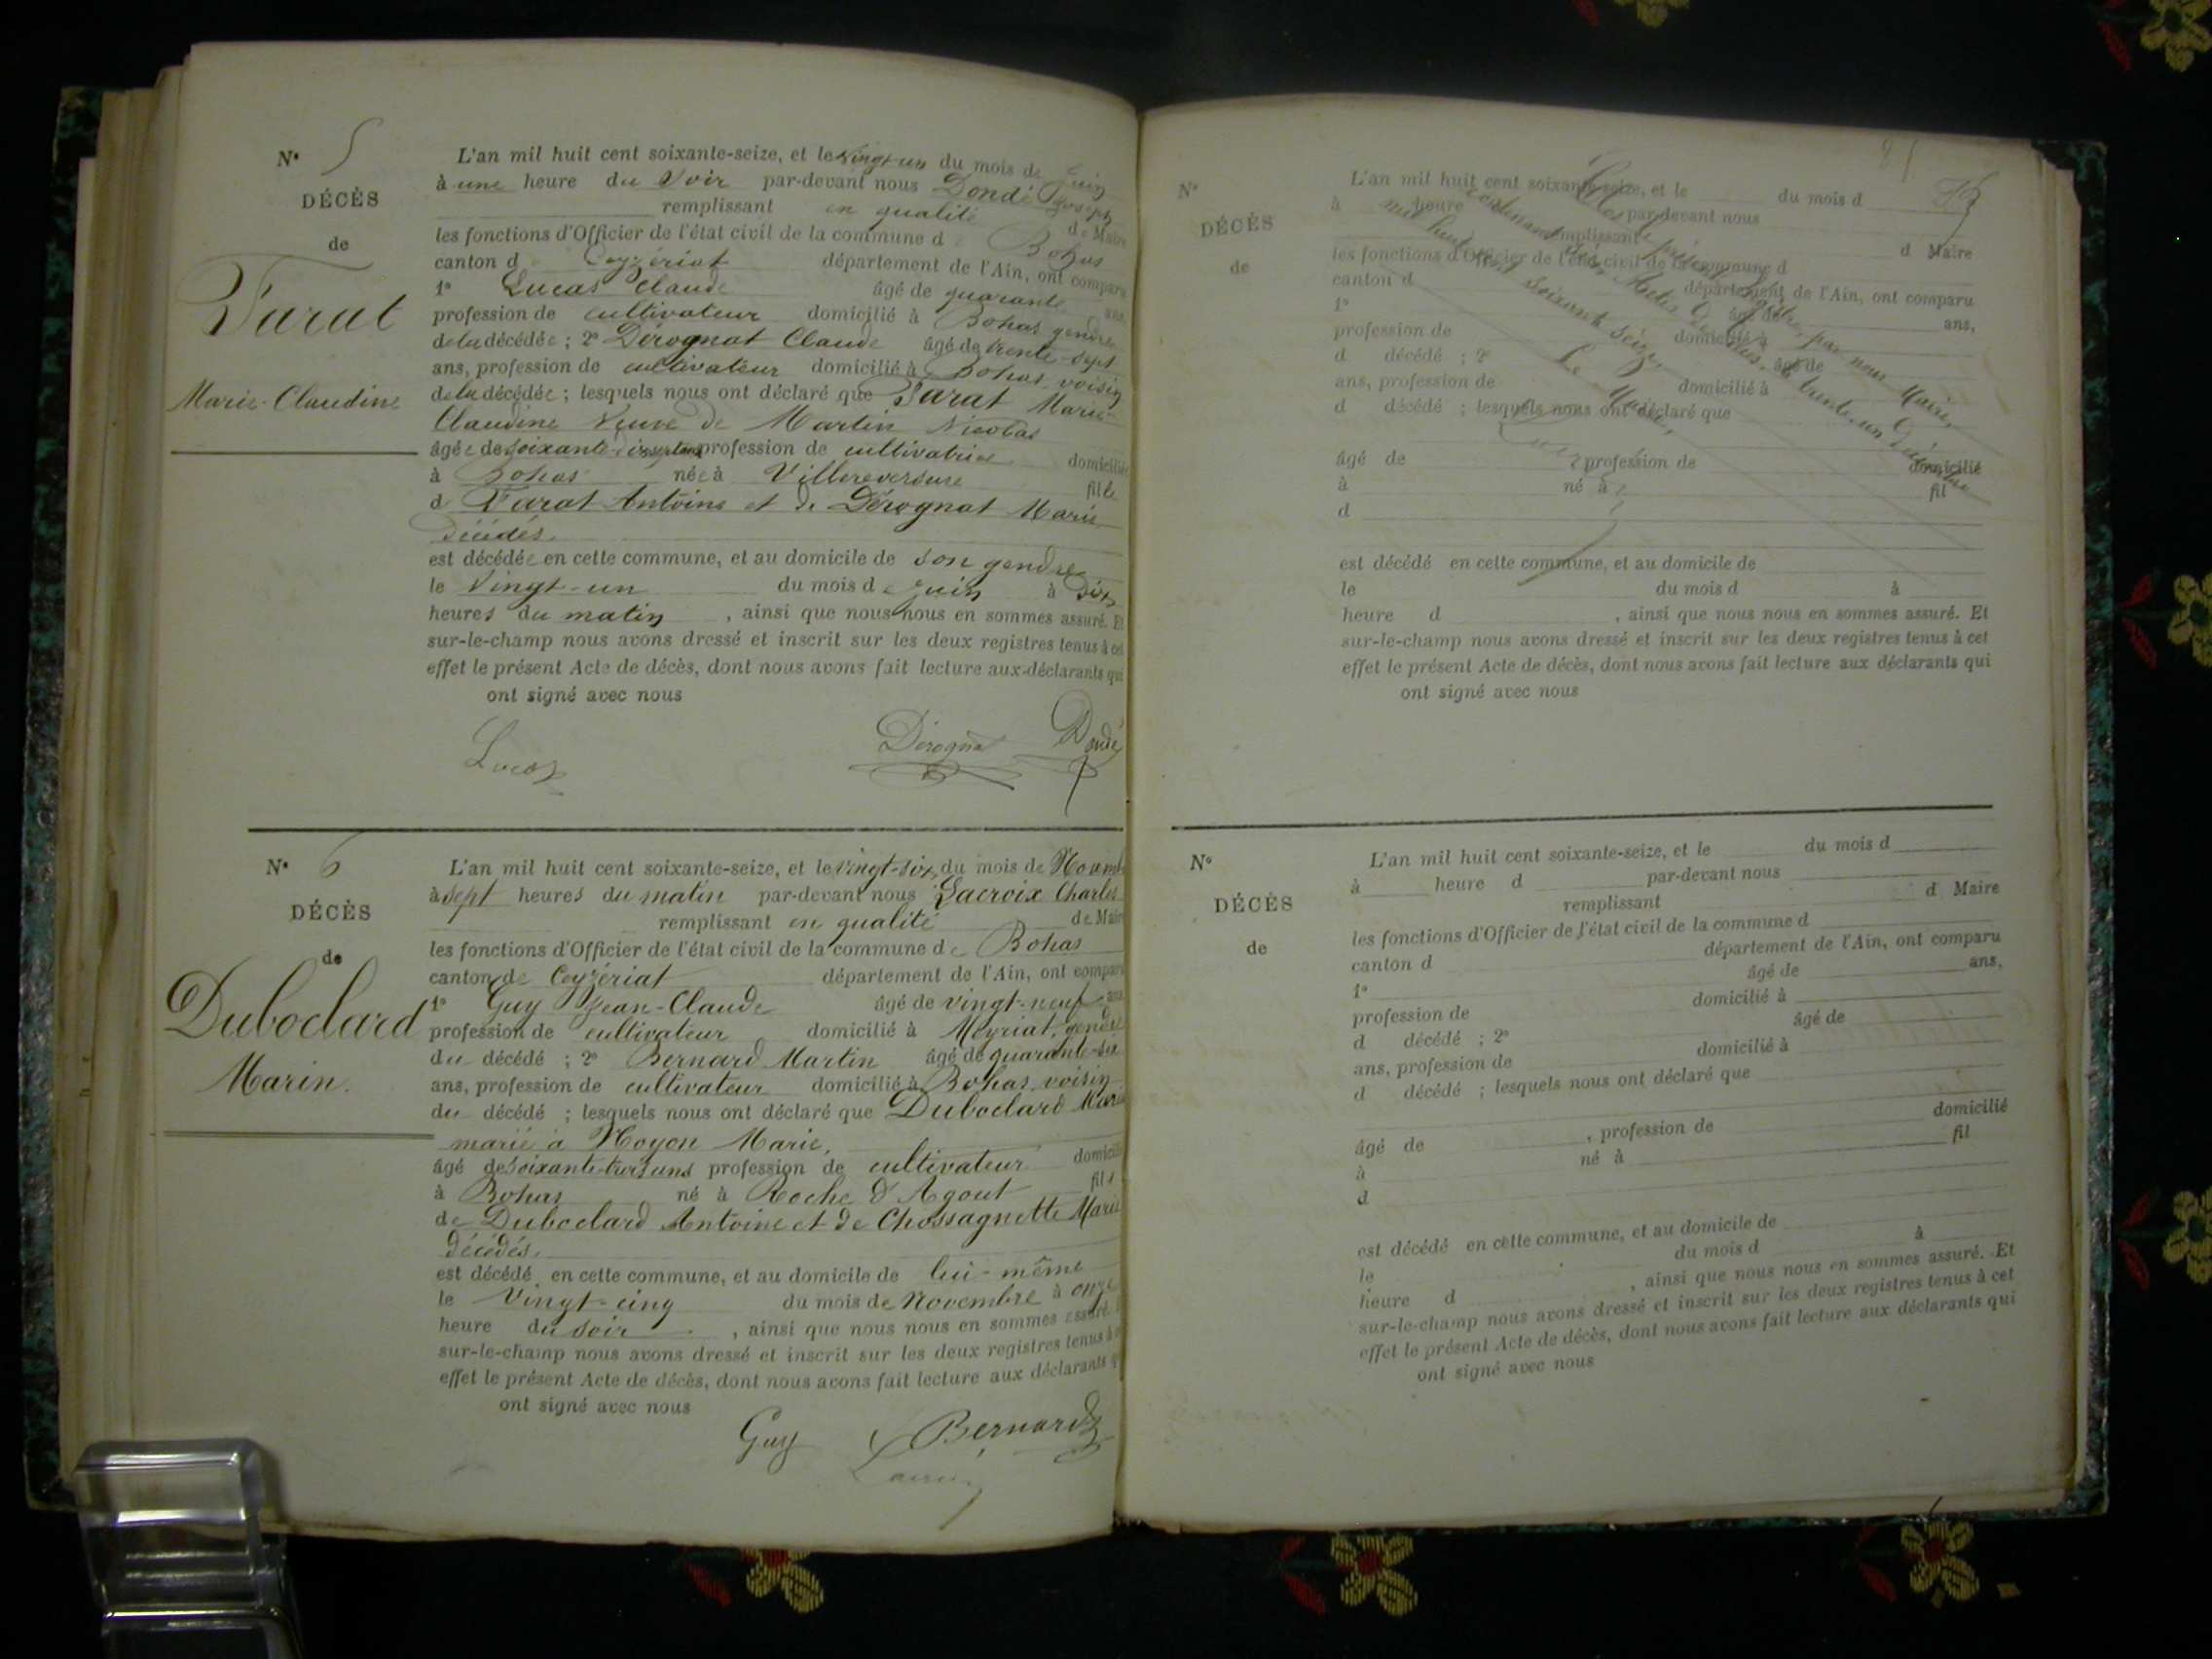 N° 5
DÉCÈS
de
Farat
Marie-Claudine
L'an mil huit cent soixante-seize, et le vingt-un du mois de Juin
à une heure du soir par-devant nous Dondé Joseph
remplissant en qualité de Maire
les fonctions d'Officier de l'état civil de la commune de Bohas
canton de Ceyzériat département de l'Ain, ont comparu
1° Lucas Claude âgé de quarante ans,
profession de cultivateur domicilié à Bohas gendre
de la décédée ; 2° Dérognat Claude âgé de trente-sept
ans, profession de cultivateur domicilié à Bohas voisin
de la décédée ; lesquels nous ont déclaré que Farat Marie-
Claudine Veuve de Martin Nicolas
âgée de soixante-dix-sept ans profession de cultivatrice domiciliée
à Bohas née à Villereversure fille
d Farat Antoine et de Dérognat Marie
décédés
est décédée en cette commune, et au domicile de son gendre
le Vingt-un du mois de Juin à dix
heures du matin , ainsi que nous nous en sommes assuré. Et
sur-le-champ nous avons dressé et inscrit sur les deux registres tenus à cet
effet le présent Acte de décès, dont nous avons fait lecture aux déclarants qui
ont signé avec nous
Lucas Dérognat Dondé
N° 6
DÉCÈS
de
Duboclard
Marin.
L'an mil huit cent soixante-seize, et le vingt-six du mois de Novemb
à sept heures du matin par-devant nous Lacroix Charles
remplissant en qualité de Mair
les fonctions d'Officier de l'état civil de la commune de Bohas
canton de Ceyzériat département de l'Ain, ont comparu
1° Guy Jean-Claude âgé de vingt-neuf ans
profession de cultivateur domicilié à Meyriat, gendre
du décédé ; 2° Bernard Martin âgé de quarante-six
ans, profession de cultivateur domicilié à Bohas, voisin
du décédé ; lesquels nous ont déclaré que Duboclard Marin
marié à Noyon Marie,
âgé de soixante-trois ans profession de cultivateur domicilié
à Bohas né à Roche d'Agout fils
de Duboclard Antoine et de Chossagnette Marie
décédés.
est décédé en cette commune, et au domicile de lui-même
le Vingt-cinq du mois de Novembre à onze
heure du soir , ainsi que nous nous en sommes assuré. E
sur-le-champ nous avons dressé et inscrit sur les deux registres tenus à c
effet le présent Acte de décès, dont nous avons fait lecture aux déclarants q
ont signé avec nous
Guy Bernard
Lacroix
N°
DÉCÈS
de
L'an mil huit cent soixante-seize, et le du mois d
à heure par-devant nous
remplissant d Maire
les fonctions d'Officier de l'état civil de la commune d
canton d département de l'Ain, ont comparu
1° âgé de ans,
profession de domicilié à
d décédé ; 2° âgé de
ans, profession de domicilié à
d décédé ; lesquels nous ont déclaré que
âgé de , profession de domicilié
à né à fil
d
est décédé en cette commune, et au domicile de
le du mois d à
heure d , ainsi que nous nous en sommes assuré. Et
sur-le-champ nous avons dressé et inscrit sur les deux registres tenus à cet
effet le présent Acte de décès, dont nous avons fait lecture aux déclarants qui
ont signé avec nous
Clos le présent registre par nous Maire,
contenant six Actes de décès, le trente-un Décembre
mil huit cent soixante seize,
Le Maire,
N°
DÉCÈS
de
L'an mil huit cent soixante-seize, et le du mois d
à heure d par-devant nous
remplissant d Maire
les fonctions d'Officier de l'état civil de la commune d
canton d département de l'Ain, ont comparu
1° âgé de ans,
profession de domicilié à
d décédé ; 2° âgé de
ans, profession de domicilié à
d décédé ; lesquels nous ont déclaré que
âgé de , profession de domicilié
à né à fil
d
est décédé en cette commune, et au domicile de
le du mois d à
heure d , ainsi que nous nous en sommes assuré. Et
sur-le-champ nous avons dressé et inscrit sur les deux registres tenus à cet
effet le présent Acte de décès, dont nous avons fait lecture aux déclarants qui
ont signé avec nous